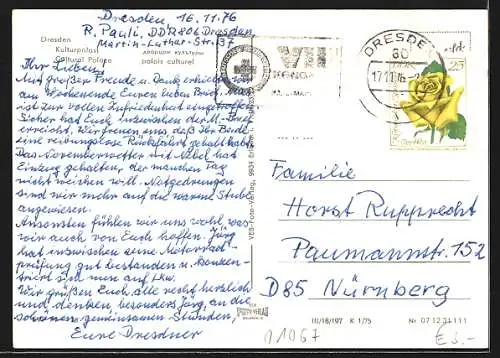 Dresden, 16.11.76
R. Pauli, DDR 806 Dresden
Martin-Luther-Str. 37
Dresden
Kulturpalast
Cultural Palace
дворец культуры
palais culturel
Ihr Lieben!
Mit großer Freude u. Dank erhielten wir
am Wochenende Euren lieben Brief.
ist zur vollen Zufriedenheit eingetroffen
Sicher hat Euch inzwischen der M.-Brief
erreicht. Wir freuen uns daß Ihr Beide
eine reibungslose Rückfahrt gehabt habt.
Das Novemberwetter mit Nebel hat
Einzug gehalten, der manchen Tag
nicht weichen will. Notgedrungen
sind wir mehr auf die warme Stube
angewiesen.
Ansonsten fühlen wir uns wohl was
wir auch von Euch hoffen. Jörg
hat inzwischen eine Motorrad-
prüfung gut bestanden u.
siert sich nun auf
Wir grüßen Euch alle recht herzlich
und denken besonders Jörg, an die
schönen gemeinsamen Stunden,
Eure Dresdner
DRESDEN
60
17.11.76
VII
KONGR
DDR
25
Familie
Horst Rupprecht
Paumannstr. 152
D85 Nürnberg
III/18/197 K 1/75
Nr 07 12 31 111
11067
€ 3.-